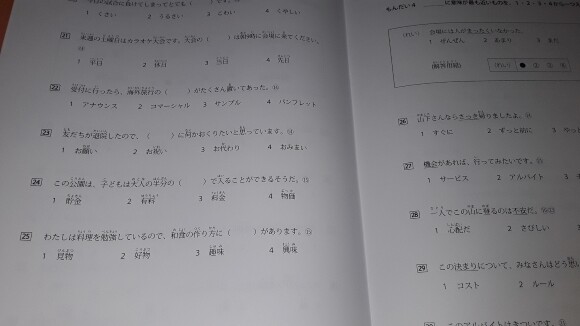 1 くさい 2 うるさい 3 こわい 4 くやしい
21 来週の土曜日はカラオケ大会です。大会の( )は朝8時に会場に来てください。
1 平日 2 休日 3 当日 4 先日
22 受付に行ったら、海外旅行の( )がたくさん置いてあった。
1 アナウンス 2 コマーシャル 3 サンプル 4 パンフレット
23 友だちが退院したので、( )に何かおくりたいと思っています。
1 お願い 2 お祝い 3 お代わり 4 おみまい
24 この公園は、子どもは大人の半分の( )で入ることができるそうだ。
1 貯金 2 有料 3 料金 4 物価
25 わたしは料理を勉強しているので、和食の作り方に( )があります。
1 見物 2 好物 3 趣味 4 興味
もんだい4
(れい) 会場には人がまったくいなかった。
1 ぜんぜん 2 あまり 3 まだ
(解答用紙) (れい) ● ② ③ ④
26 山下さんならさっき帰りましたよ。
1 すぐに 2 ずっと前に 3
27 機会があれば、行ってみたいです。
1 サービス 2 アルバイト 3
28 一人でこの山に登るのは不安だ。
1 心配だ 2 さびしい 3
29 この決まりについて、みなさんはどう思い
1 コスト 2 ルール
30 このアルバイトはきついです。